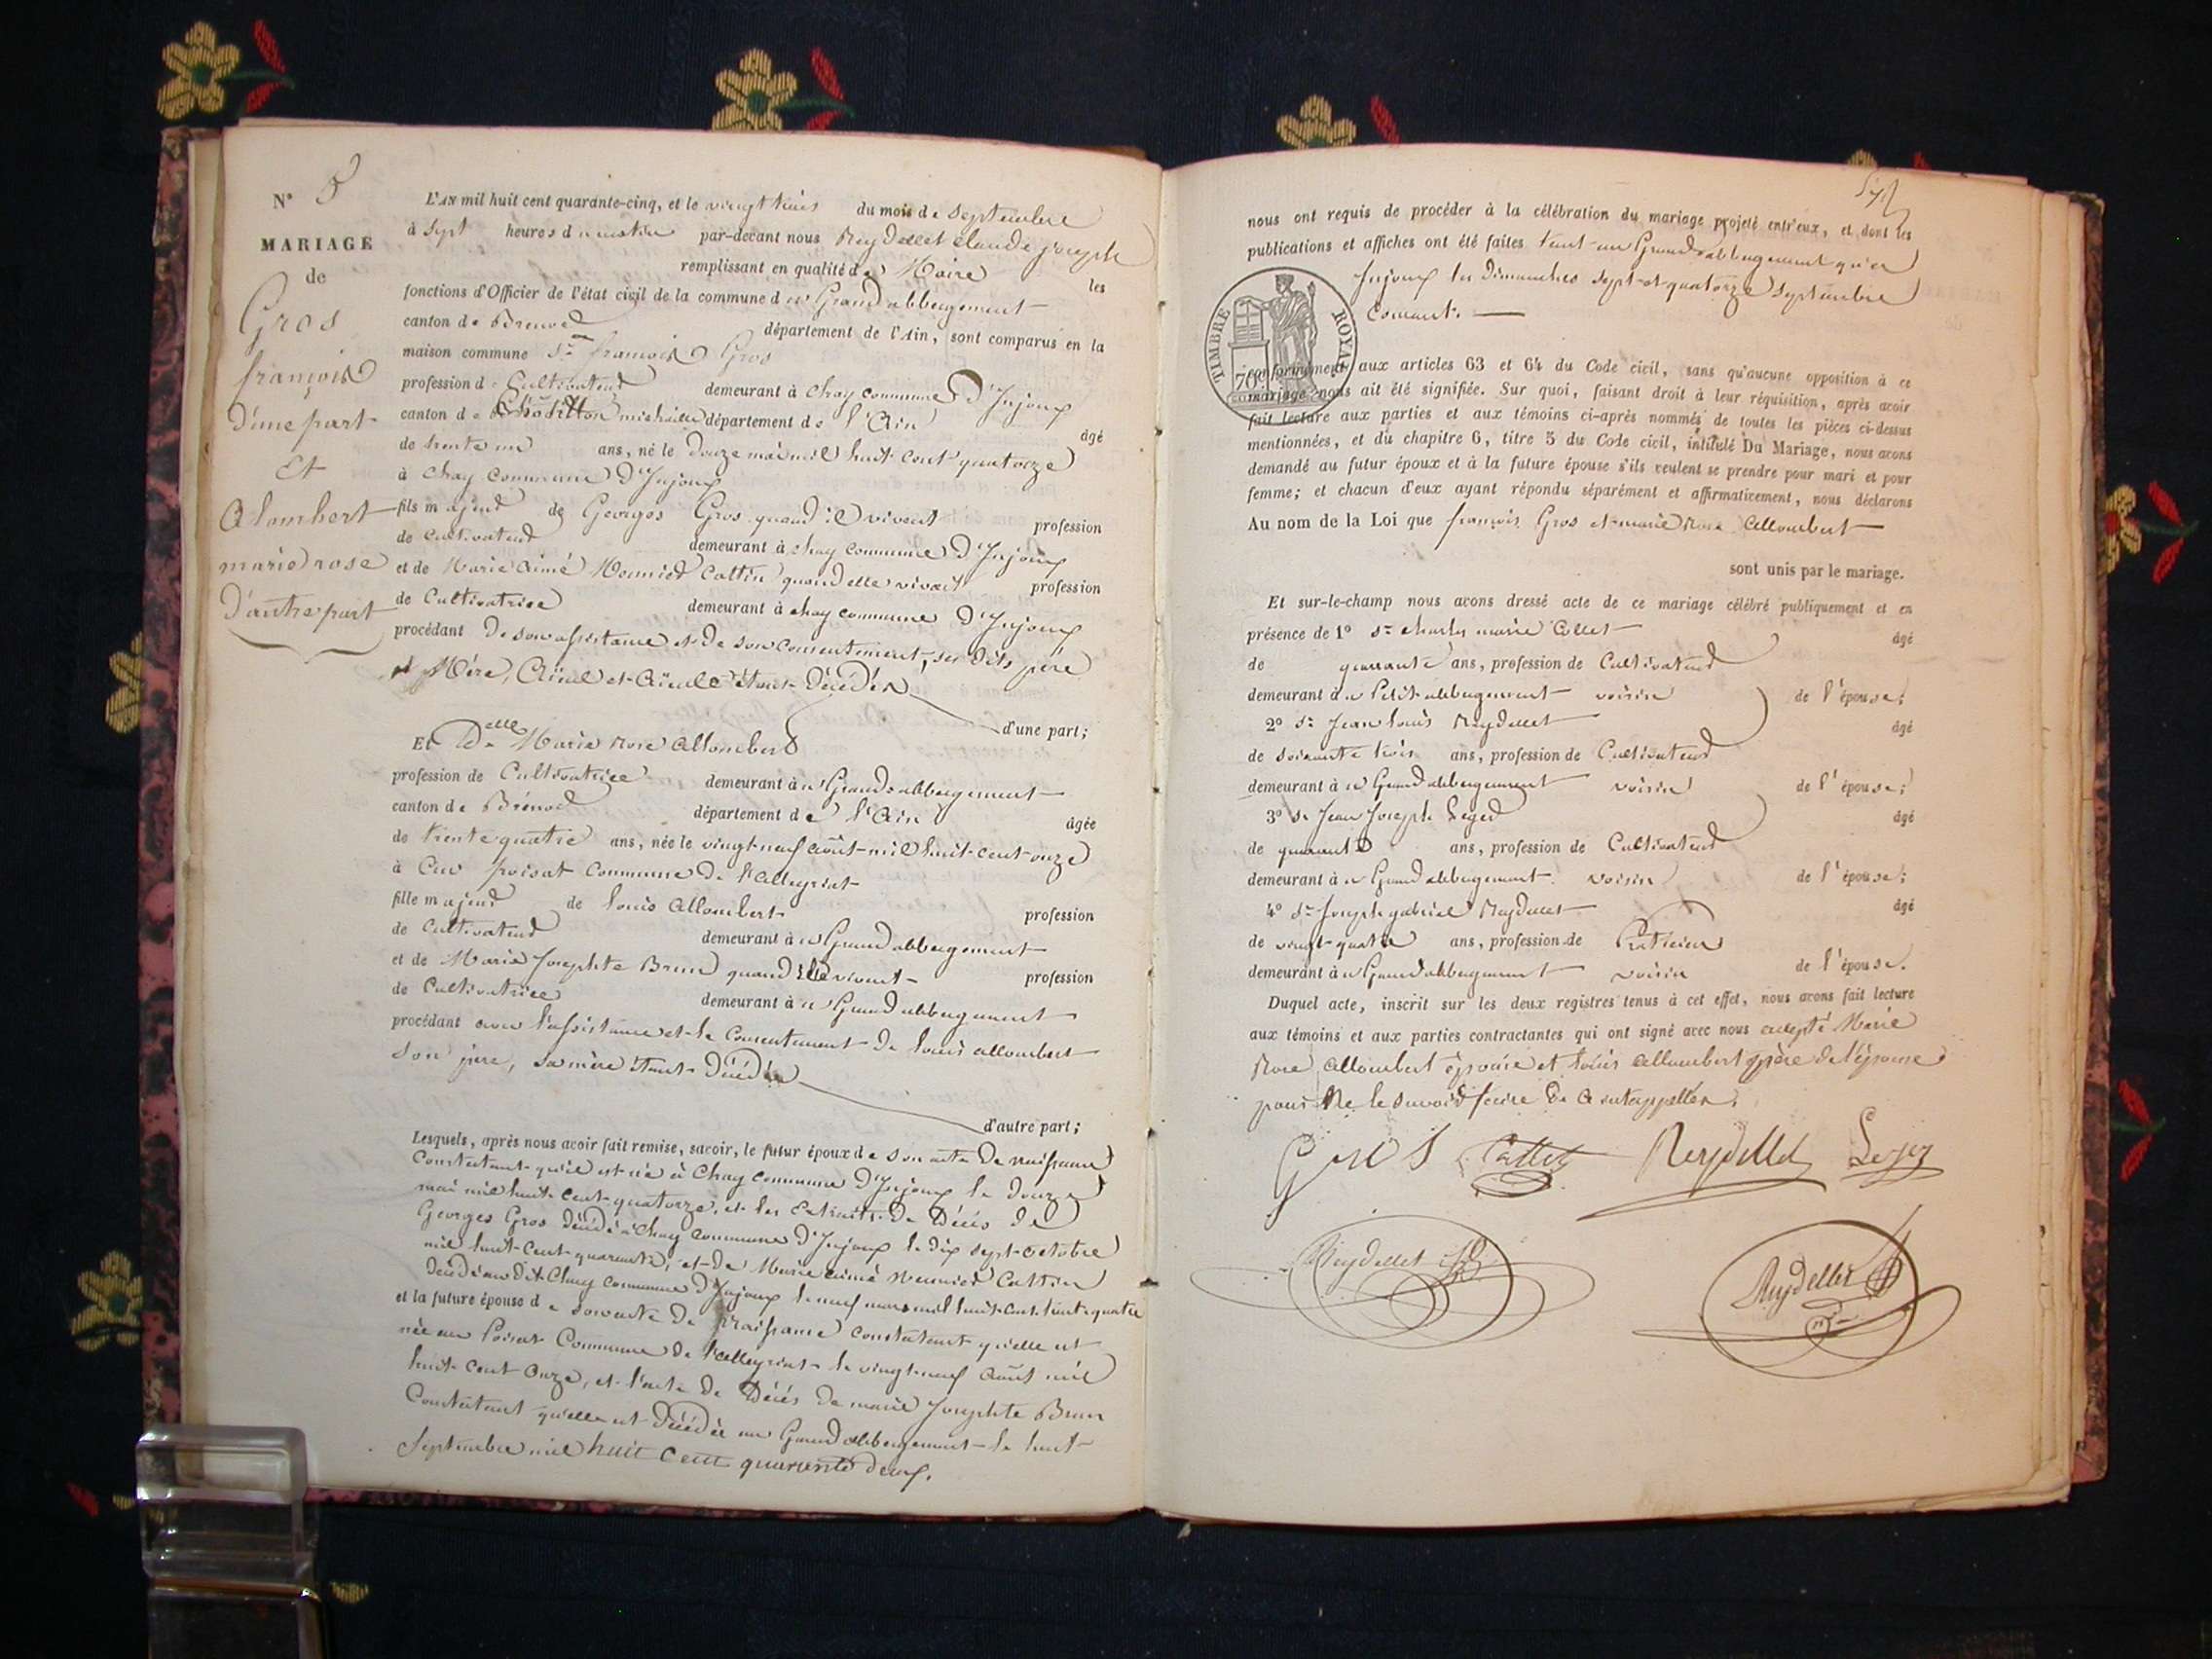 N° 5
MARIAGE
de
Gros
françois
D'une part
Et
Alombert
marie rose
D'autre part
L'AN mil huit cent quarante-cinq, et le vingt trois du mois de Septembre
à Sept heures du matin par-devant nous Reydellet Claude Joseph
remplissant en qualité de Maire les
fonctions d'Officier de l'état civil de la commune du Grand abbergement
canton de Brenod département de l'Ain, sont comparus en la
maison commune Sr françois Gros
profession de Cultivateur demeurant à Chay commune D'Injoux
canton de Chatillon michaille département de l'Ain âgé
de trente un ans, né le Douze mai mil huit cent quatorze
à Chay Commune D'Injoux
fils majeur de Georges Gros quand il vivent profession
de Cultivateur demeurant à Chay Commune D'Injoux
et de Marie Aimé Meunier Cattin quand elle vivait profession
de Cultivatrice demeurant à Chay commune D'Injoux
procédant De son assistance et De son consentement, ses Dits père
et Mère, Aïeul et Aïeule étant Décédés
d'une part;
Et Delle Marie Rose Allombert
profession de Cultivatrice demeurant à u Grand abbergement
canton de Brénod département de l'Ain âgée
de trente quatre ans, née le vingt-neuf août mil huit cent onze
à au poisat Commune De l'Alleyriat
fille majeur de Louis Allombert profession
de Cultivateur demeurant à u Grand abbergement
et de Marie Josephte Brun quand elle vivent profession
de Cultivatrice demeurant à u Grand abbergement
procédant avec l'assistance et le Consentement De Louis allombert
Son père, sa mère étant Décédée
d'autre part;
Lesquels, après nous avoir fait remise, savoir, le futur époux de son acte De naissance
Constatant qu'il est né à Chay Commune D'Injoux le Douze
mai mil huit cent quatorze, et les Extraits De Décés De
Georges Gros Décédé à Chay Commune D'Injoux le dix sept octobre
mil huit cent quarante, et De Marie aimé Meunier Cattin
Décédé au Dit Chay Commune D'Injoux le neuf mars mil huit cent trente quatre
et la future épouse de son acte De Naissance constatant qu'elle est
née au Poisat Commune De l'alleyriat le vingt-neuf Août mil
huit Cent Onze, et l'acte De Décés De marie Josephte Brun
Constatant qu'elle est Décédée au Grand abbergement le huit
Septembre mil huit Cent quarante deux.
nous ont requis de procéder à la célébration du mariage projeté entr'eux, et dont les
publications et affiches ont été faites tant au Grand abbergement qu'à
Injoux les Dimanches Sept et quatorze Septembre
Courant.
TIMBRE ROYAL
70c
conformément aux articles 63 et 64 du Code civil, sans qu'aucune opposition à ce
mariage nous ait été signifiée. Sur quoi, faisant droit à leur réquisition, après avoir
fait lecture aux parties et aux témoins ci-après nommés de toutes les pièces ci-dessus
mentionnées, et du chapitre 6, titre 5 du Code civil, intitulé Du Mariage, nous avons
demandé au futur époux et à la future épouse s'ils veulent se prendre pour mari et pour
femme; et chacun d'eux ayant répondu séparément et affirmativement, nous déclarons
Au nom de la Loi que françois Gros et marie Rose Allombert
sont unis par le mariage.
Et sur-le-champ nous avons dressé acte de ce mariage célébré publiquement et en
présence de 1° Sr Charles marie Collet âgé
de quarante ans, profession de Cultivateur
demeurant à u Petit abbergement voisin de l'épouse;
2° Sr Jean Louis Reydellet âgé
de soixante trois ans, profession de Cultivateur
demeurant à u Grand abbergement voisin de l'épouse;
3° Sr Jean Joseph Leger âgé
de quarante ans, profession de Cultivateur
demeurant à u Grand abbergement voisin de l'épouse;
4° Sr Joseph gabriel Reydellet âgé
de vingt quatre ans, profession de Praticien
demeurant à u Grand abbergement voisin de l'épouse.
Duquel acte, inscrit sur les deux registres tenus à cet effet, nous avons fait lecture
aux témoins et aux parties contractantes qui ont signé avec nous excepté Marie
Rose Allombert épouse et Louis Allombert père De l'épouse
pour Ne le Savoir faire De ce interpellés.
Gros Collet Reydellet Leger
Reydellet
Reydellet